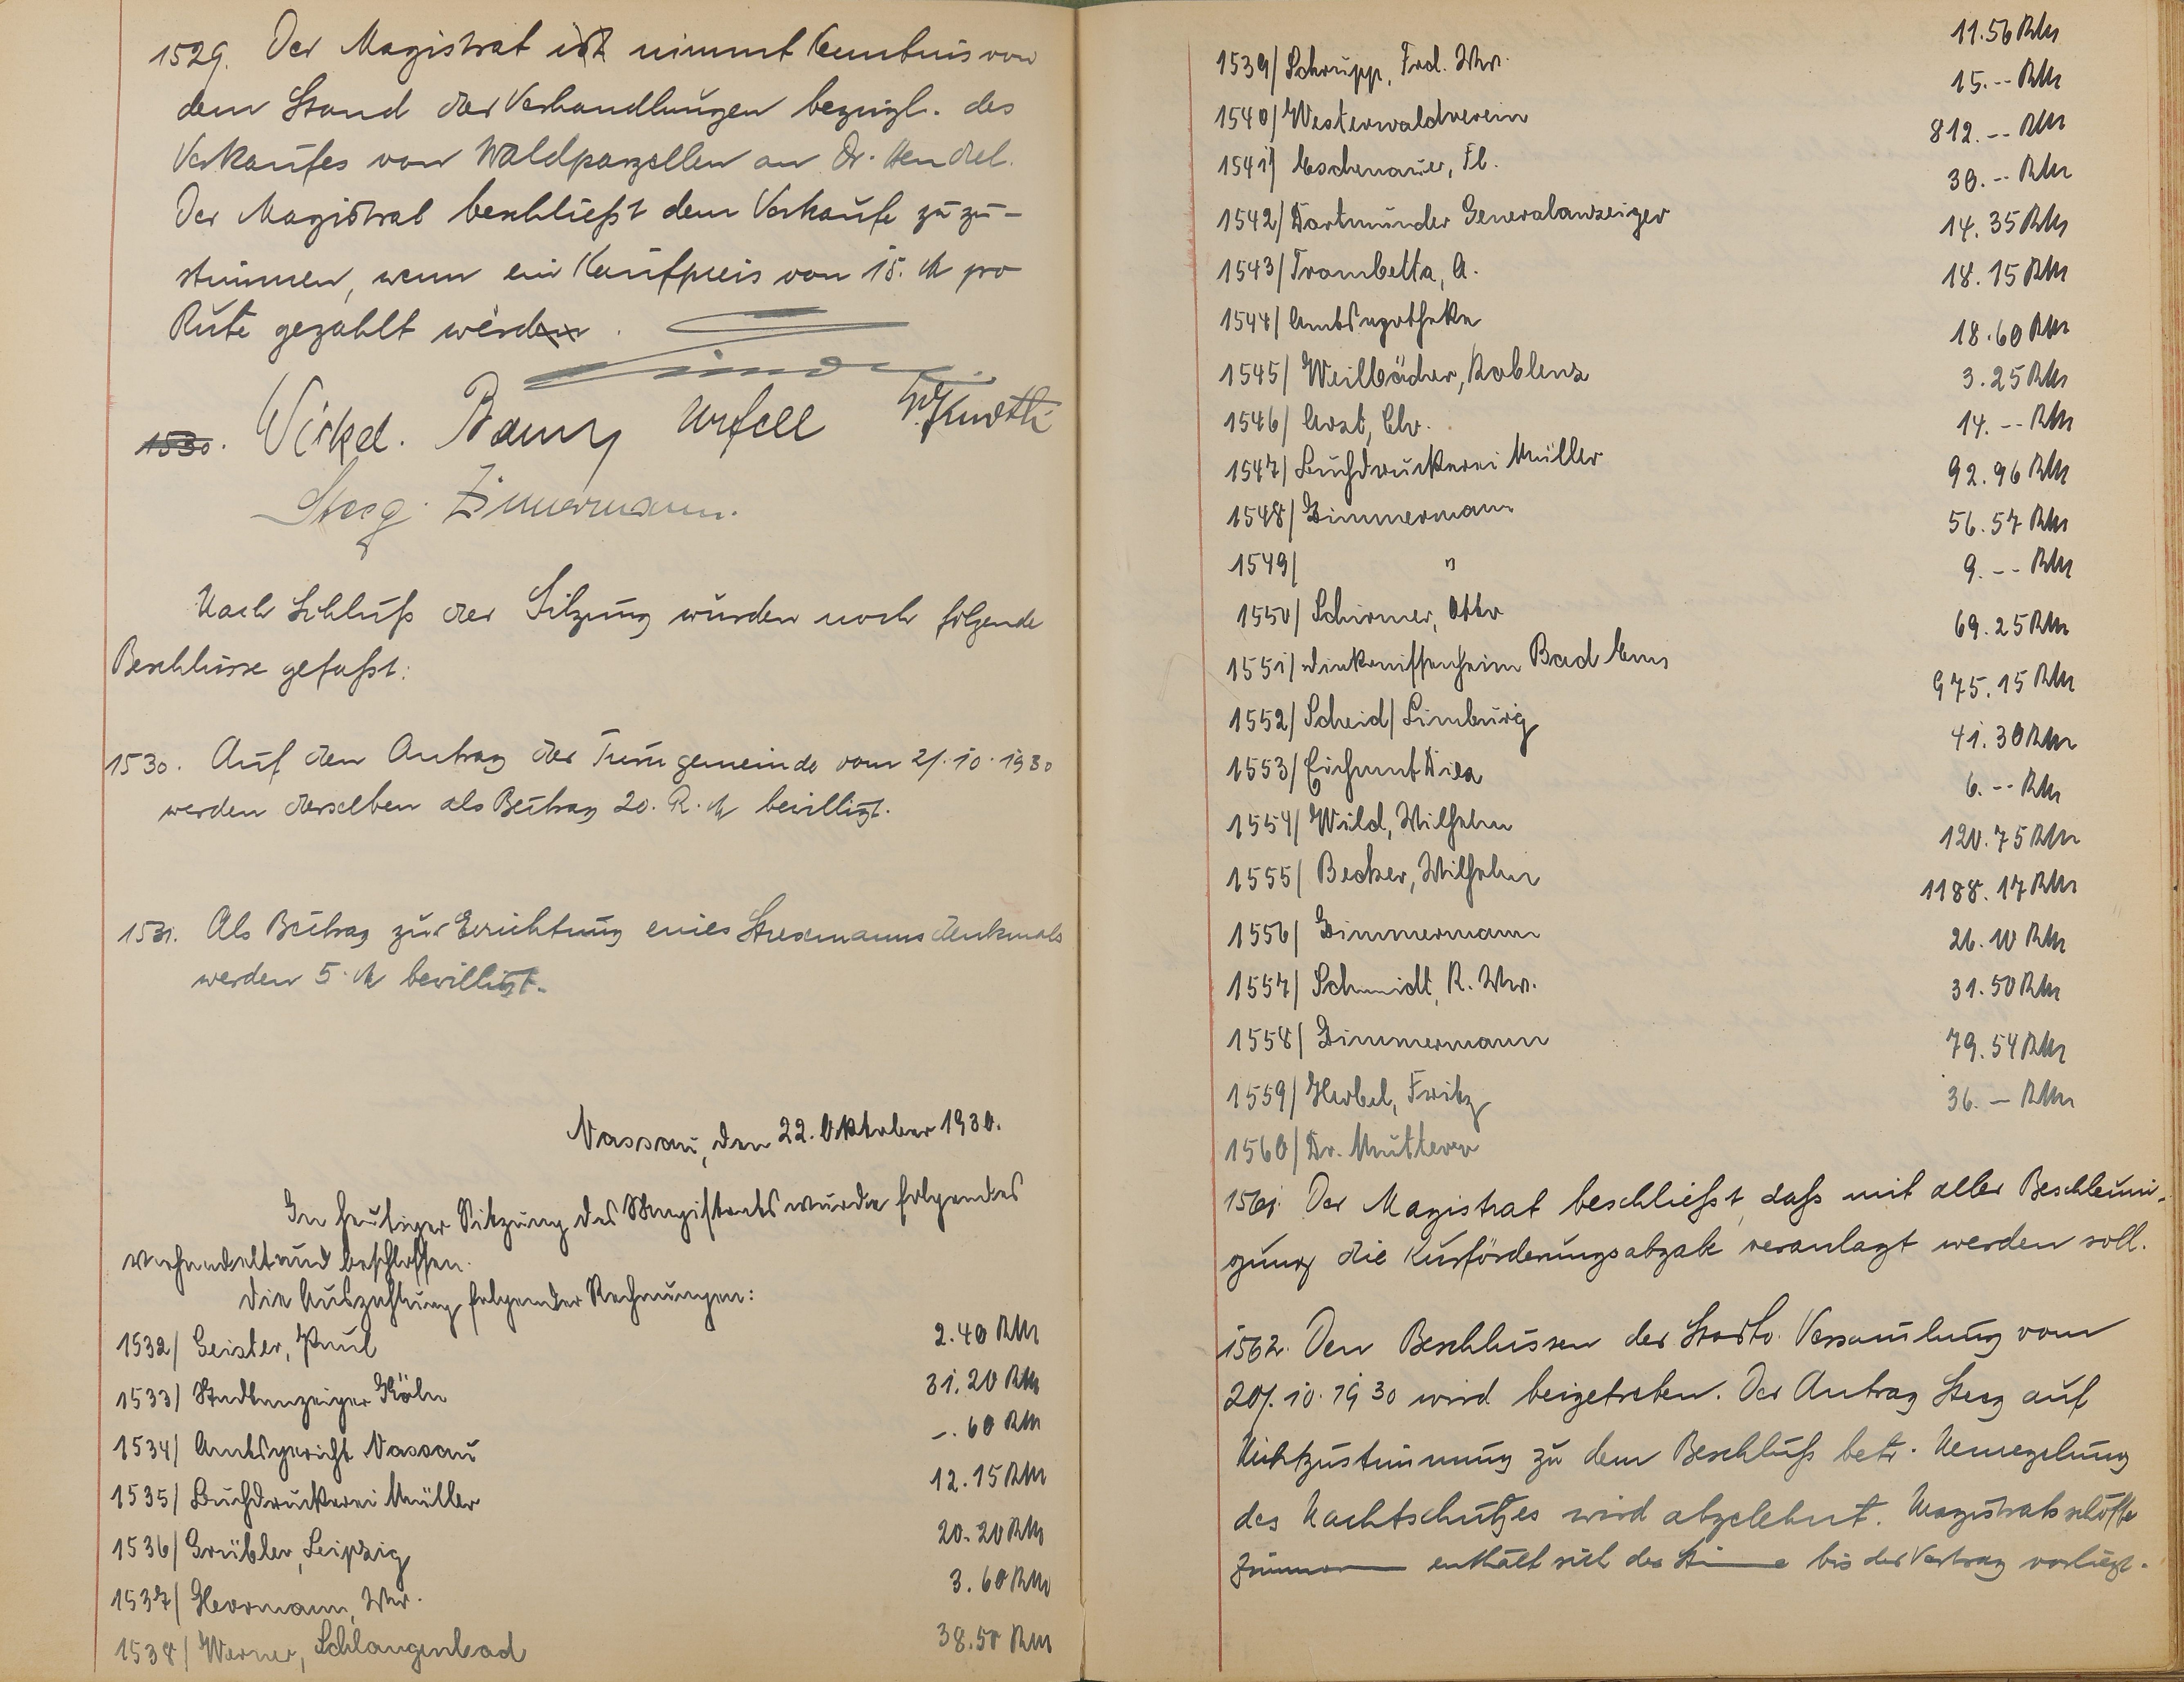 1529. Der Magistrat ist nimmt Kenntnis von
dem Stand der Verhandlungen bezügl. des
Verkaufes von Waldparzellen an Dr. Hendel.
Der Magistrat beschließt dem Verkaufe zuzu-
stimmen, wenn ein Kaufpreis von 15. M pro
Rute gezahlt werden.
1530.
Unfell
Steeg. Zimmermann.
Nach Schluß der Sitzung wurden noch folgende
Beschlüsse gefaßt:
1530. Auf den Antrag der Turngemeinde vom 21.10.1930
werden derselben als Beitrag 20. R.M bewilligt.
1531. Als Beitrag zur Errichtung eines Stresemannsdenkmals
werden 5. M bewilligt.
Nassau, den 22. Oktober 1930.
In heutiger Sitzung des Magistrats wurde folgendes
verhandelt und beschlossen.
Die Auszahlung folgender Rechnungen:
1532/ Geisler, Paul 2.40 RM
1533/ Stadtanzeiger Köln 31.20 RM
1534/ Amtsgericht Nassau -.60 RM
1535/ Buchdruckerei Müller 12.15 RM
1536/ Grübler, Leipzig 20.20 RM
1537/ Herrmann, Ww. 3.60 RM
1538/ Werner, Schlangenbad 38.50 RM
1539/ Schrupp, Frd. Ww. 11.56 RM
1540/ Westerwaldverein 15.-- RM
1541/ Eschenauer, Fl. 812.-- RM
1542/ Dortmunder Generalanzeiger 30.-- RM
1543/ Trombetta, A. 14.35 RM
1544/ Amtsapotheke 18.15 RM
1545/ Weilbächer, Koblenz 18.60 RM
1546/ Arzt, Chr. 3.25 RM
1547/ Buchdruckerei Müller 14.-- RM
1548/ Zimmermann 92.96 RM
1549/ " 56.57 RM
1550/ Schirmer, Otto 9.-- RM
1551/ Diakonissenheim Bad Ems 69.25 RM
1552/ Scheid/ Limburg 975.15 RM
1553/ Eichamt Diez 41.30 RM
1554/ Wild, Wilhelm 6.-- RM
1555/ Becker, Wilhelm 120.75 RM
1556/ Zimmermann 1188.17 RM
1557/ Schmidt, R. Ww. 26.10 RM
1558/ Zimmermann 31.50 RM
1559/ Herbel, Fritz 79.54 RM
1560/ Dr. Mutterer 36.- RM
1561. Der Magistrat beschließt, daß mit aller Beschleuni-
gung die Kurförderungsabgabe veranlagt werden soll.
1562. Den Beschlüssen der Stadtv. Versammlung vom
20/.10.1930 wird beigetreten. Der Antrag Steeg auf
Nichtzustimmung zu dem Beschluß betr. Neuregelung
des Nachtschutzes wird abgelehnt. Magistratsschöffe
Zimmermann enthält sich der Stimme bis der Vertrag vorliegt.